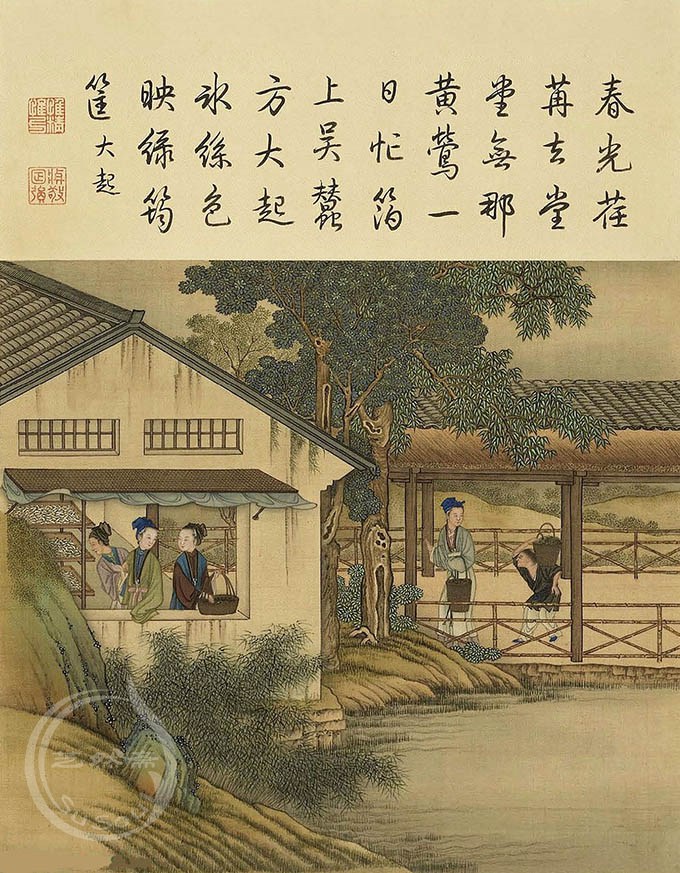 春光荏
苒去堂
堂無那
黄鶯一
日忙箔
上吴蠶
方大起
冰絲色
映緑筠
筐 大起